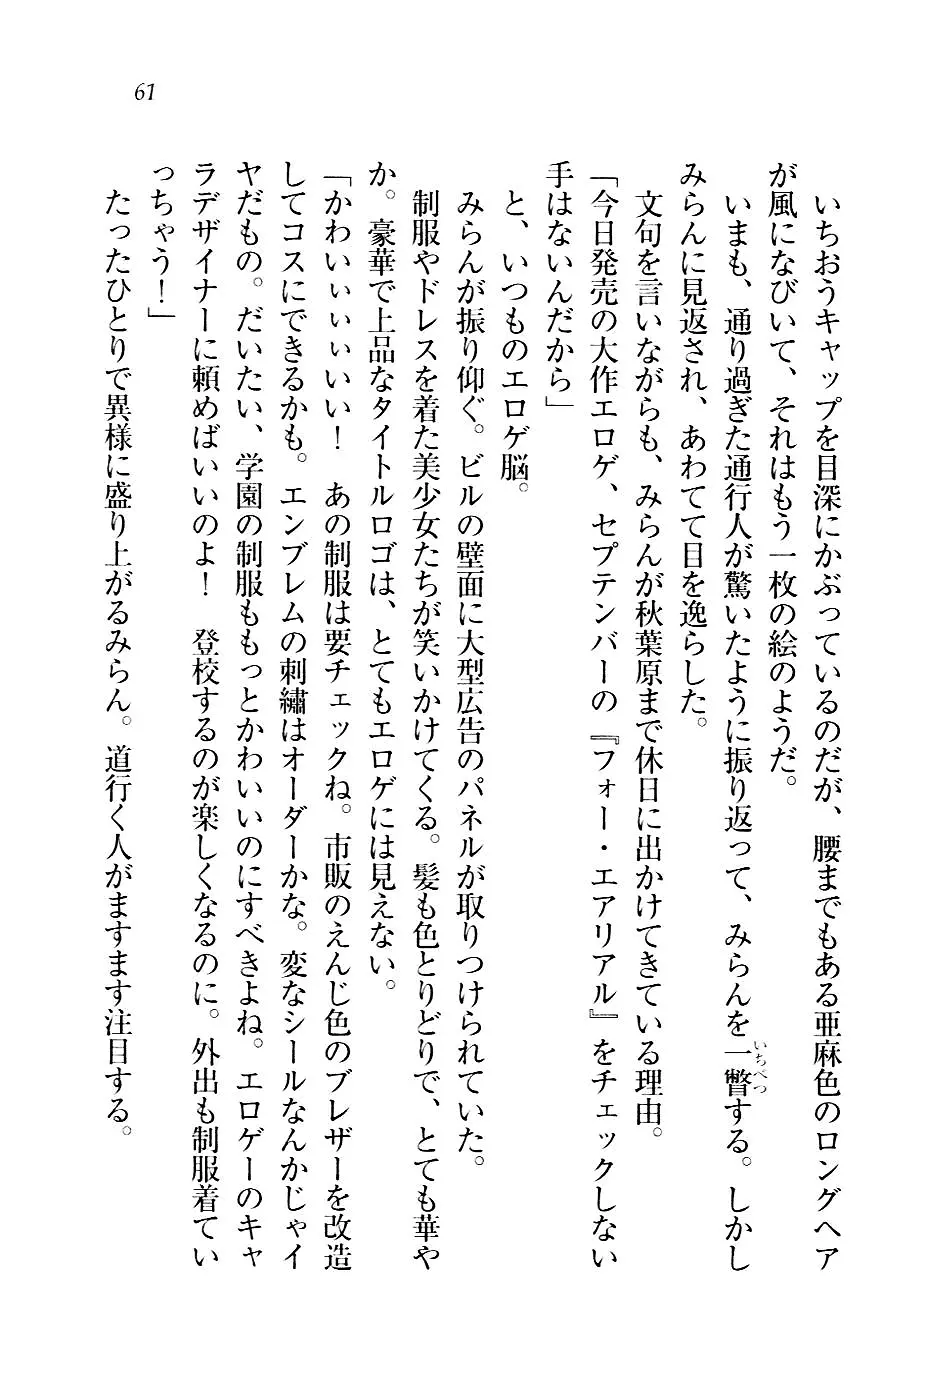 61
いちおうキャップを目深にかぶっているのだが、腰までもある亜麻色のロングヘア
が風になびいて、それはもう一枚の絵のようだ。
いまも、通り過ぎた通行人が驚いたように振り返って、みらんを一瞥する。しかし
いちべつ
みらんに見返され、あわてて目を逸らした。
文句を言いながらも、みらんが秋葉原まで休日に出かけてきている理由。
「今日発売の大作エロゲ、セプテンバーの『フォー・エアリアル』をチェックしない
手はないんだから」
と、いつものエロゲ脳。
みらんが振り仰ぐ。ビルの壁面に大型広告のパネルが取りつけられていた。
制服やドレスを着た美少女たちが笑いかけてくる。髪も色とりどりで、とても華や
か。豪華で上品なタイトルロゴは、とてもエロゲには見えない。
「かわいぃぃぃい！　あの制服は要チェックね。市販のえんじ色のブレザーを改造
してコスにできるかも。エンブレムの刺繡はオーダーかな。変なシールなんかじゃイ
ヤだもの。だいたい、学園の制服ももっとかわいいのにすべきよね。エロゲーのキャ
ラデザイナーに頼めばいいのよ！　登校するのが楽しくなるのに。外出も制服着てい
っちゃう！」
たったひとりで異様に盛り上がるみらん。道行く人がますます注目する。